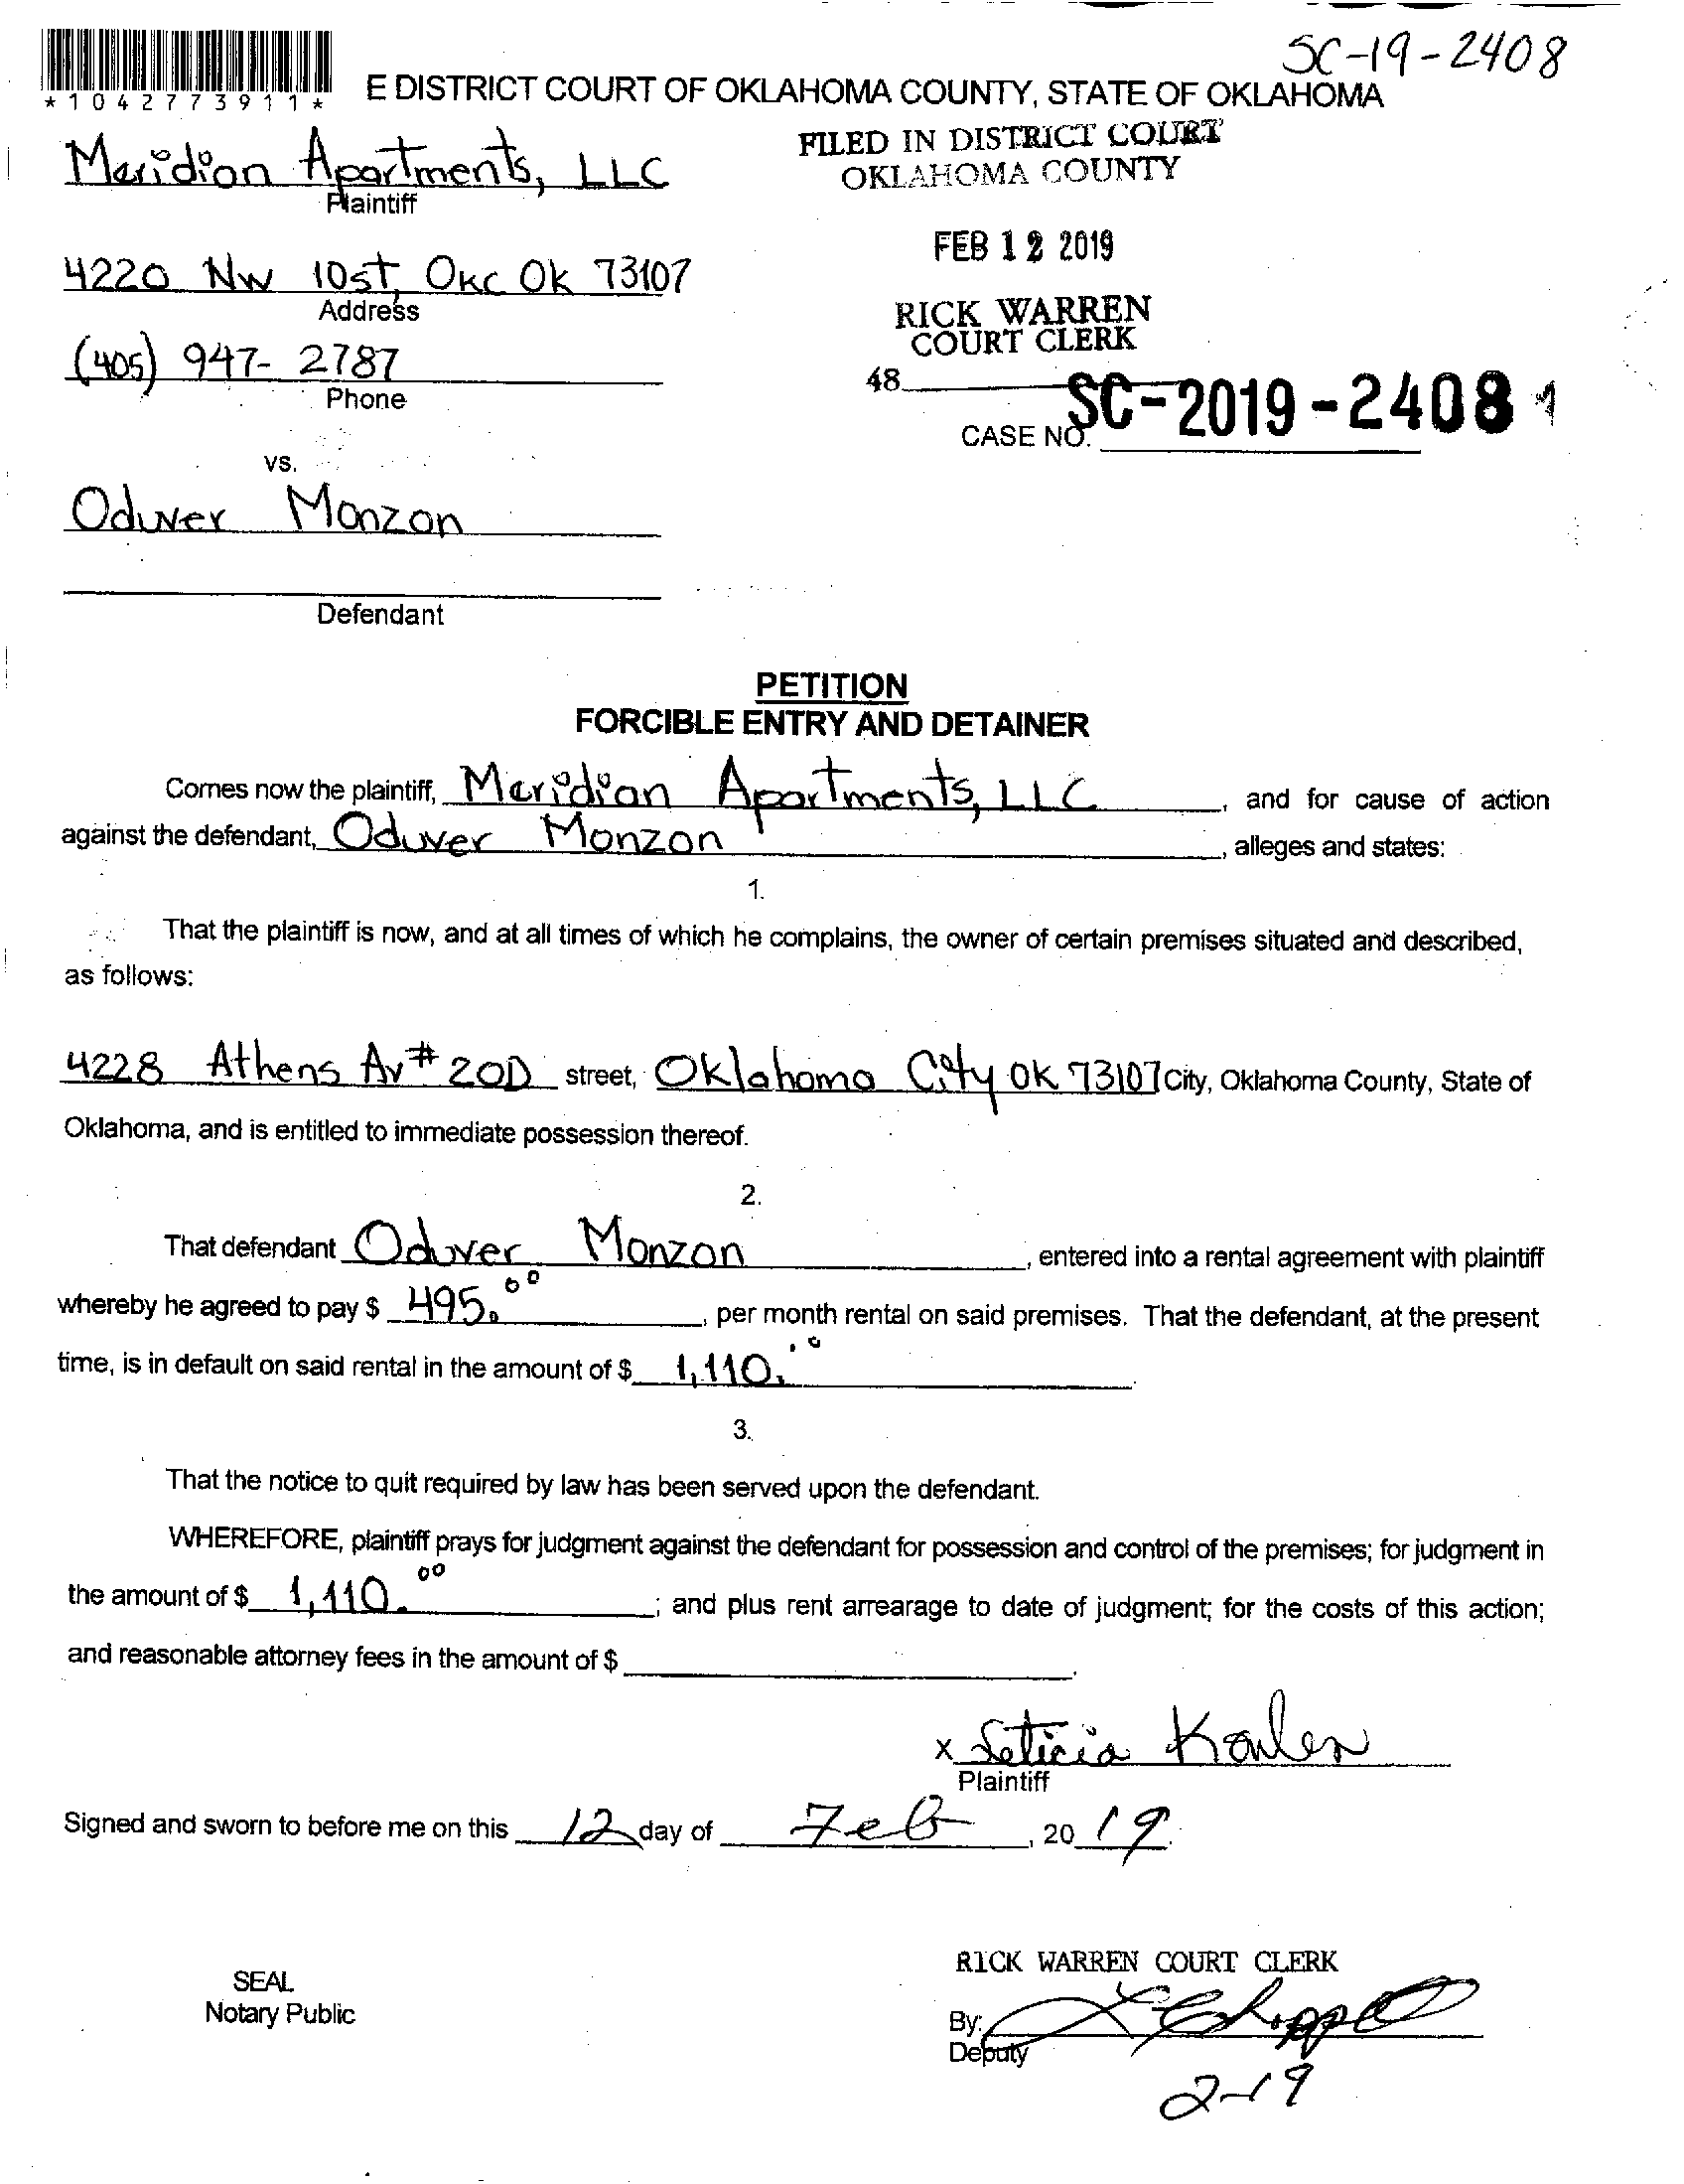 SC-19-2408
*1042773911*
E DISTRICT COURT OF OKLAHOMA COUNTY, STATE OF OKLAHOMA
Meridian Apartments, LLC
Plaintiff
FILED IN DISTRICT COURT
OKLAHOMA COUNTY
4220 NW 10st, OKC OK 73107
Address
FEB 12 2019
(405) 947-2787
Phone
RICK WARREN
COURT CLERK
48
CASE NO. SC-2019-2408
vs.
Oduver Monzon
Defendant
PETITION
FORCIBLE ENTRY AND DETAINER
Comes now the plaintiff, Meridian Apartments, LLC, and for cause of action
against the defendant, Oduver Monzon, alleges and states:
1.
That the plaintiff is now, and at all times of which he complains, the owner of certain premises situated and described,
as follows:
4228 Athens Av # 20D street, Oklahoma City OK 73107 City, Oklahoma County, State of
Oklahoma, and is entitled to immediate possession thereof.
2.
That defendant Oduver Monzon, entered into a rental agreement with plaintiff
whereby he agreed to pay $ 495.00, per month rental on said premises. That the defendant, at the present
time, is in default on said rental in the amount of $ 1,110.00
3.
That the notice to quit required by law has been served upon the defendant.
WHEREFORE, plaintiff prays for judgment against the defendant for possession and control of the premises; for judgment in
the amount of $ 1,110.00; and plus rent arrearage to date of judgment; for the costs of this action;
and reasonable attorney fees in the amount of $ .
x Leticia
Plaintiff
Signed and sworn to before me on this 12 day of Feb, 20 19.
SEAL
Notary Public
RICK WARREN COURT CLERK
By:
Deputy
2-19